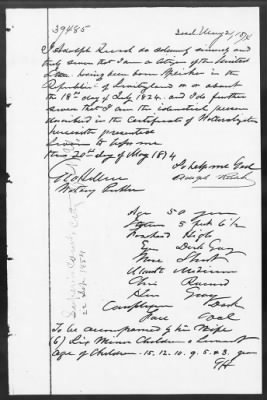 39485
I Adolph do solemnly sincerely and
truly swear that I am a Citizen of the United
States having been born in the
Republic of Switzerland on or about
the 18th day of July 1824. and I do further
swear that I am the identical person
described in the Certificate of Naturalization
herewith presented
Sworn to before me
this 20th day of May 1874
So help me God
Notary Public
Age 50 years
5 feet 6 1/2
Forehead High
Eyes Dark Gray
Nose Short
Mouth Medium
Chin Round
Gray
Complexion Dark
Face Oval
To be accompanied by his Wife
(6) Six Minor Children &
Age of Children. 15. 12. 10. 9. 5 & 3. years